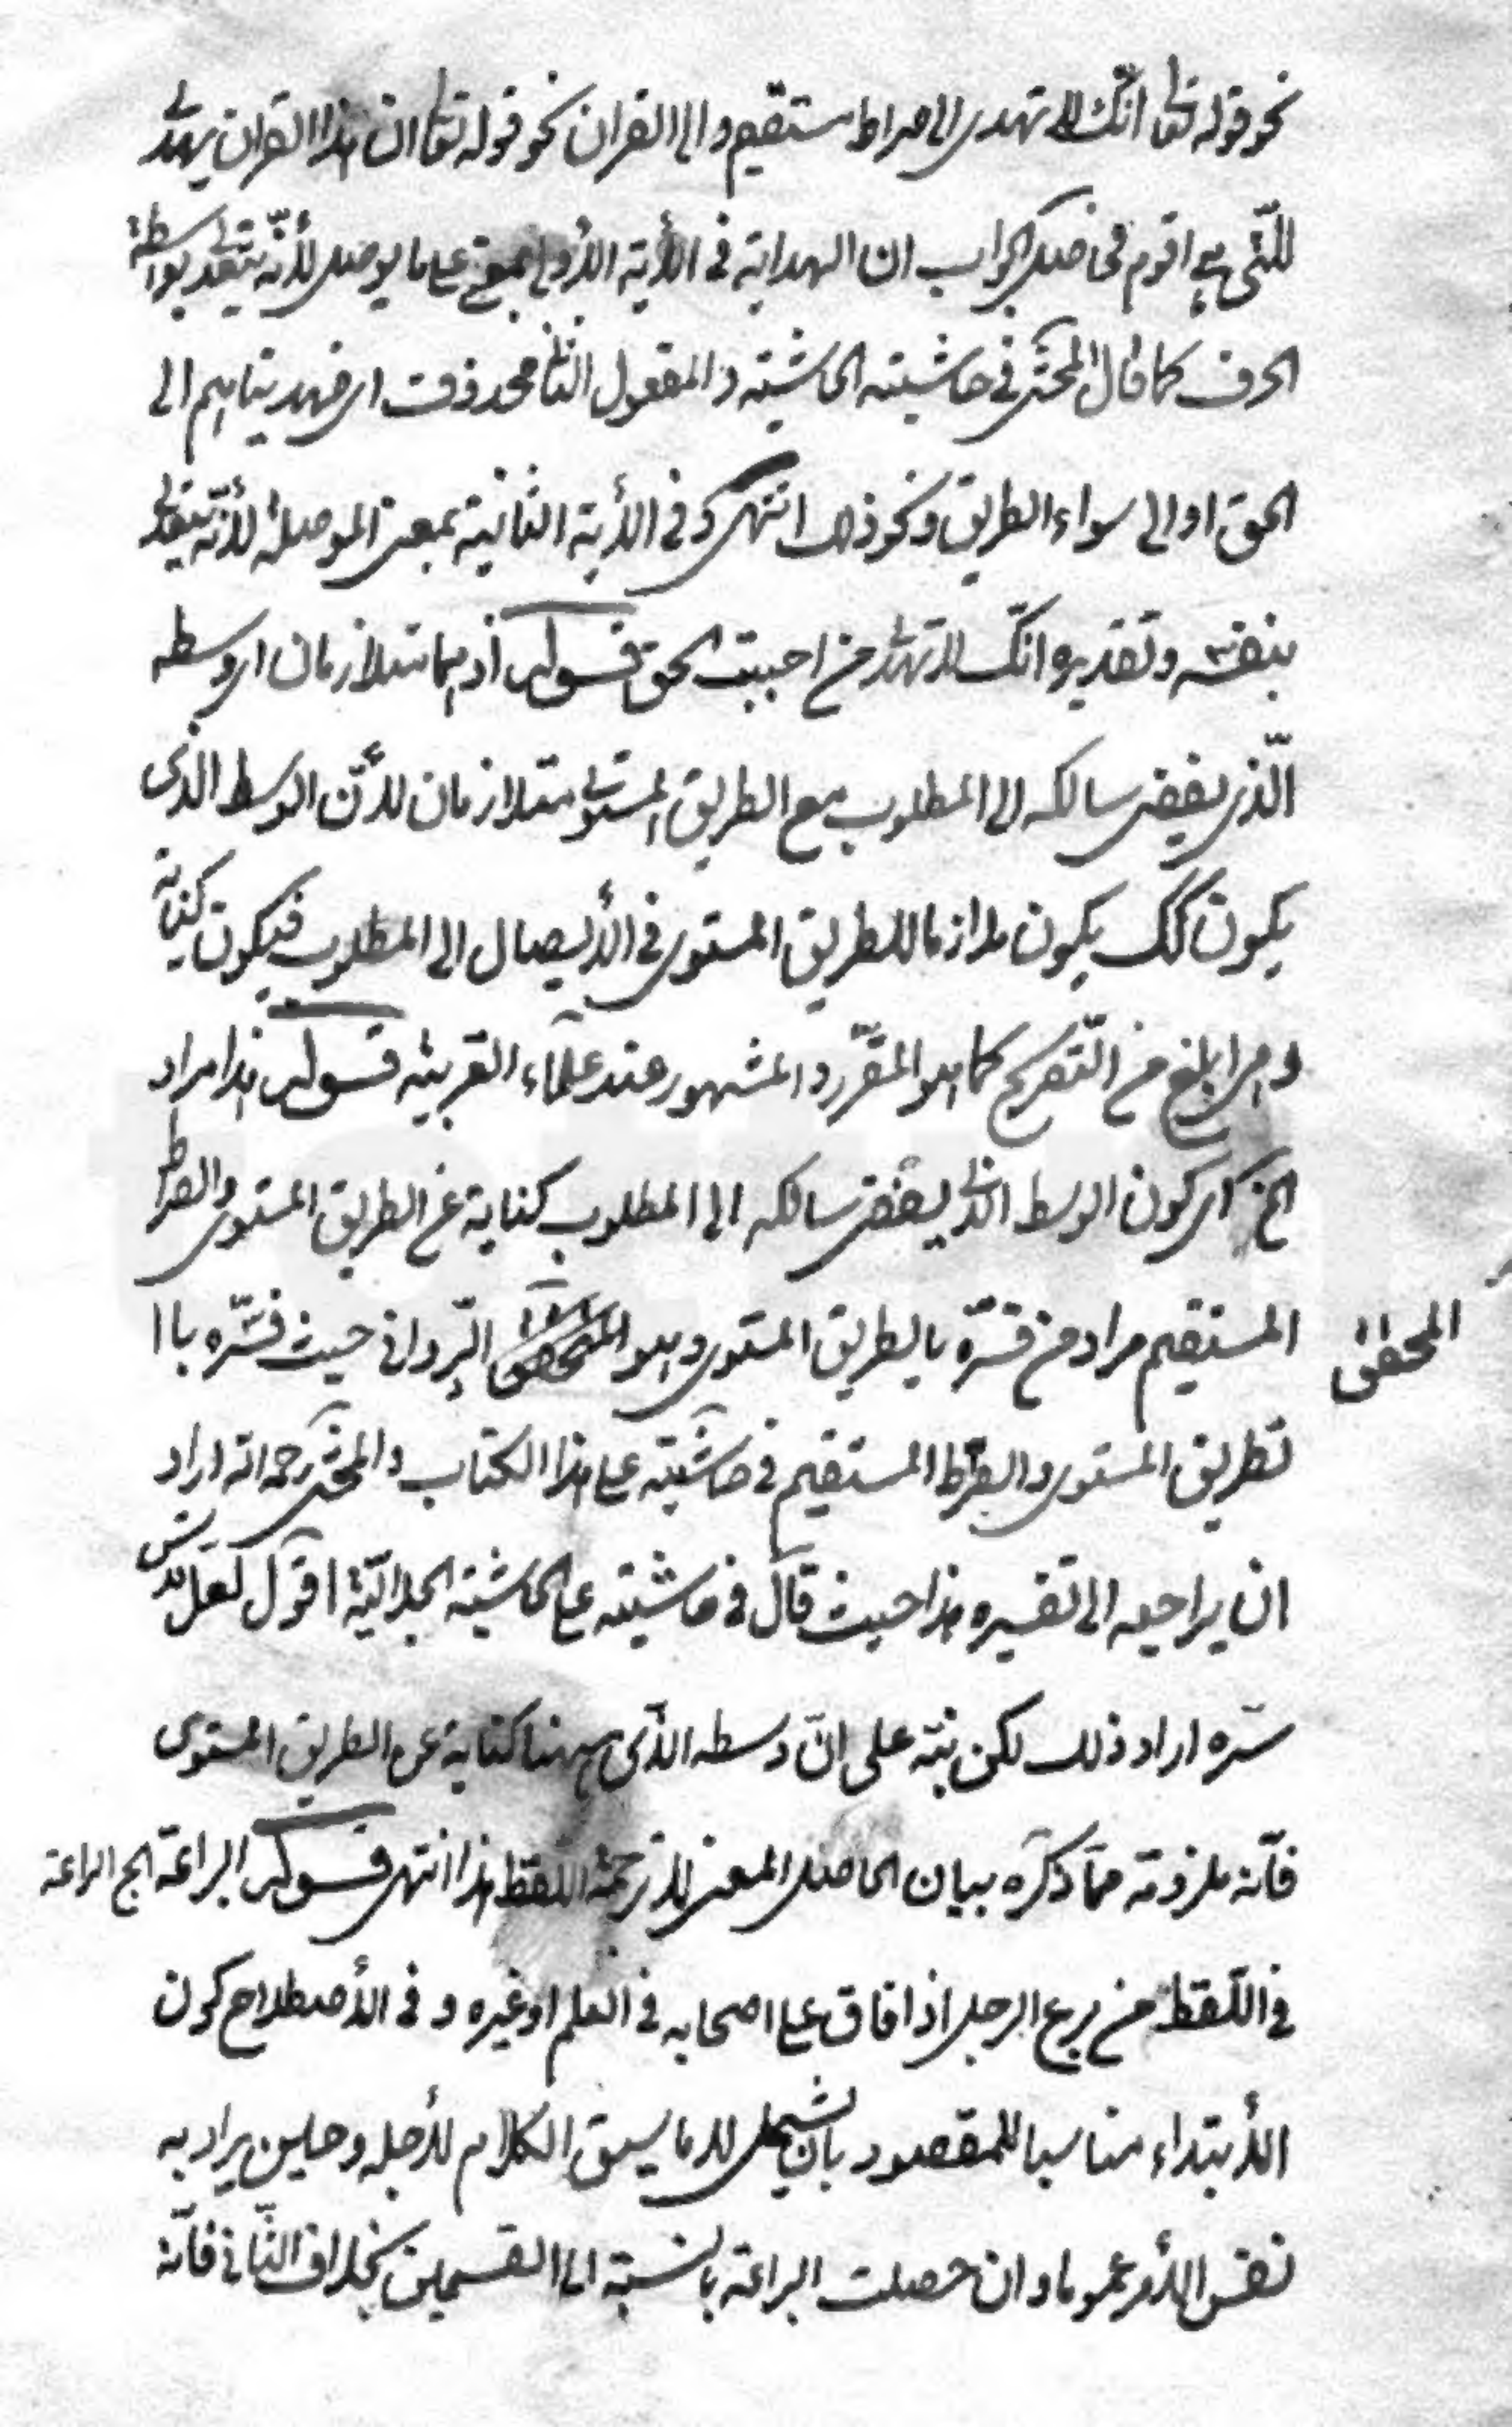 نحو قوله تعا انّك لا تهدى الى صراط مستقيم والى القران نحو قوله تعا ان هذا القران يهدى
للّتى هي اقوم فحاصل الجواب ان الهداية فى الأية الأولى بمعنى على ما يوصل لأنّه يتعدى بواسطة
الحرف كما قال المحشى فى حاشيته الحاشية والمفعول الثانى محذوف اى فهديناهم الى
الحق او الى سواء الطريق ونحو ذلك انتهى وفى الأية الثانية بمعنى الموصلة لأنّه يتعدى
بنفسه وتقديره انّك لا تهدى من احببت الحق قوله اذ هما متلازمان اى وسطه
الّذى يفضى سالكه الى المطلوب مع الطريق المستوى متلازمان لأنّ الوسط الذى
يكون كك يكون ملازما للطريق المستوى فى الأيصال الى المطلوب فيكون كناية
وهى ابلغ من التّصريح كما هو المقرّر والمشهور عند علماء العربية قوله هذا مراد
الخ اى كون الوسط الذى يفضى سالكه الى المطلوب كناية عن الطريق المستوى والصراط
المستقيم مراد من فسّره بالطريق المستوى وهو المحقق الدّوانى حيث فسّره باا
المحقق
لطريق المستوى والصراط المستقيم فى حاشيته على هذا الكتاب والمحشى رحمه الله اراد
ان يراجعه الى تفسيره هذا حيث قال فى حاشيته على الحاشية الجلاليّة اقول لعلّ قدس
سّره اراد ذلك لكن نبّه على انّ وسطه الذى ههنا كناية عن الطريق المستوى
فأنّه ملزومه ممّا ذكره بيان الحاصل المعنى لا ترجمة اللّفظ هذا انتهى قوله البراعة الخ البراعة
فى اللّفظ من برع الرجل اذا فاق على اصحابه فى العلم او غيره و فى الأصطلاح كون
الأبتداء مناسبا للمقصود بان يشتمل لا ما سيق الكلام لأجله وحين يراد به
نفس الأمر عموما وان حصلت البراعة بالنسبة الى القسمين بخلاف الثّانى فانّه